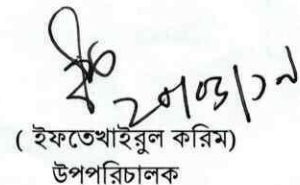 ২০/০৩/১৭
( ইফতেখাইরুল করিম)
উপপরিচালক